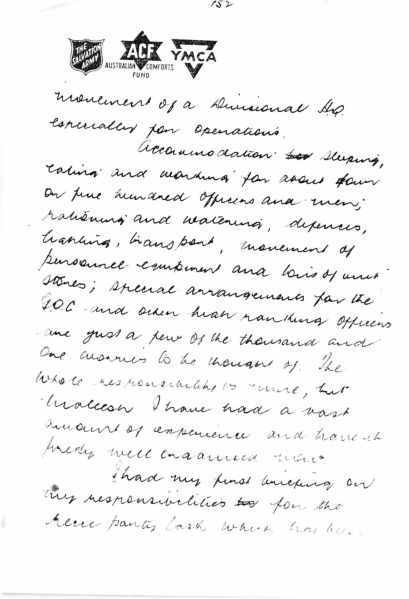 152
THE SALVATION ARMY
ACF
AUSTRALIAN COMFORTS
FUND
YMCA
movement of a Divisional HQ
especially for operations.
Accommodation sleeping,
eating and working for about four
or five hundred officers and men;
rationing and watering, defences,
lighting, transport, movement of
personnel equipment and tons of unit
stores; special arrangements for the
G.O.C. and other high ranking officers
are just a few of the thousand and
one worries to be thought of. The
whole responsibility is mine, but
maleesh I have had a vast
amount of experience and have it
pretty well organised now.
I had my first briefing on
my responsibilities for the
recce party task which has been